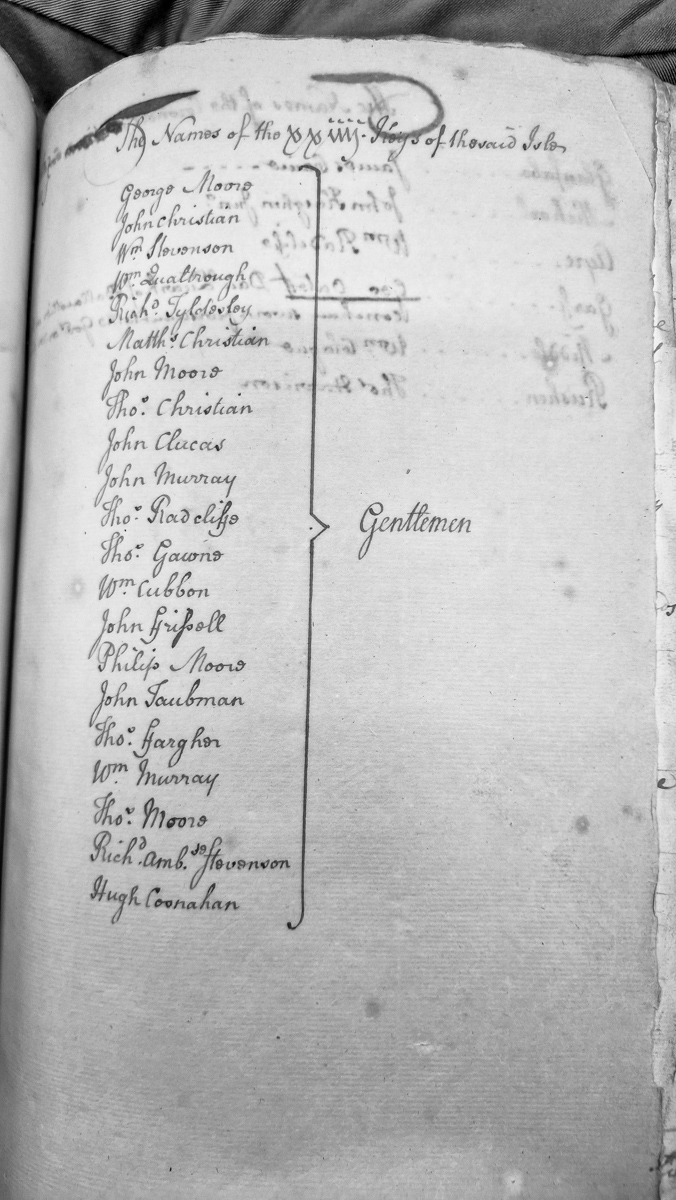 The Names of the xxiiij. Keys of the said Isle
George Moore
John Christian
Wm. Stevenson
Wm. Qualtrough
Richd. Tyldesley
Matths. Christian
John Moore
Thos. Christian
John Clucas
John Murray
Thos. Radcliffe
Thos. Gawne
Gentlemen
Wm. Cubbon
John Frissell
Philip Moore
John Taubman
Thos. Fargher
Wm. Murray
Thos. Moore
Richd. Ambse. Stevenson
Hugh Coonahan